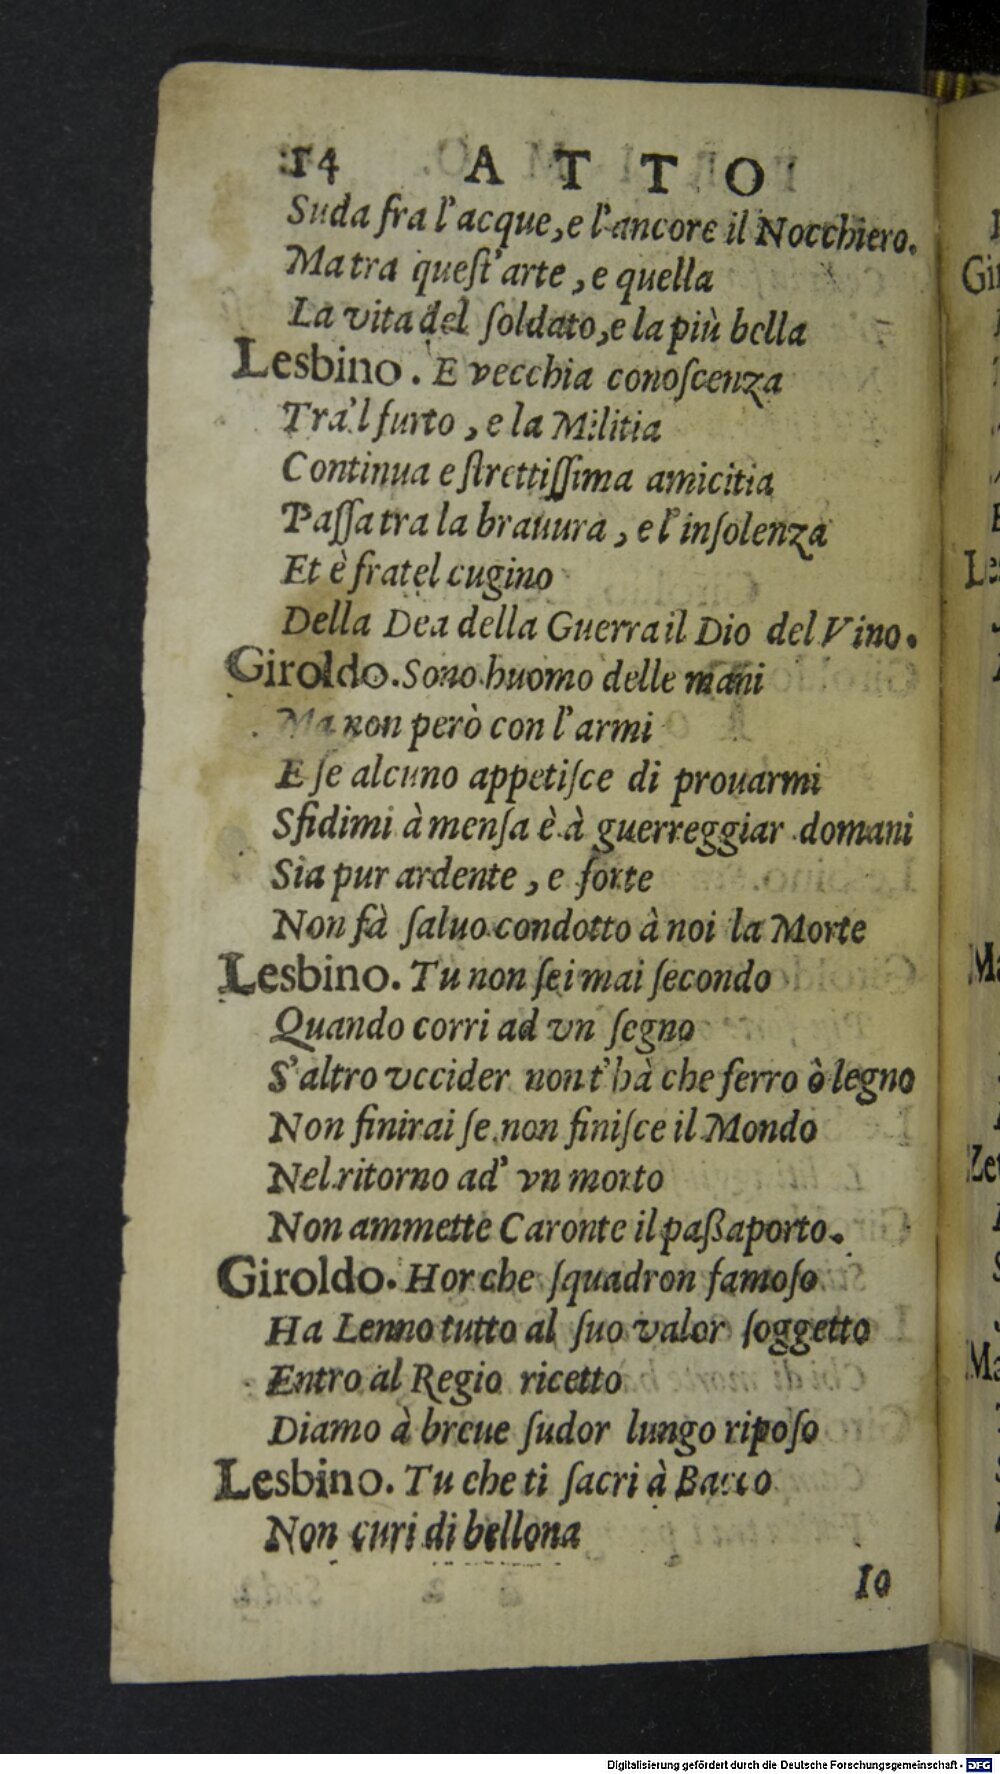 14 ATTO
Suda fra l'acque, e l'ancore il Nocchiero.
Ma tra queſt'arte, e quella
La vita del ſoldato, e la più bella
Lesbino. E vecchia conoſcenza
Tra'l furto, e la Militia
Continua e ſtrettiſſima amicitia
Paſſa tra la brauura, e l'inſolenza
Et è fratel cugino
Della Dea della Guerra il Dio del Vino.
Giroldo. Sono huomo delle mani
Ma non però con l'armi
E ſe alcuno appetiſce di prouarmi
Sfidimi à menſa è à guerreggiar domani
Sia pur ardente, e forte
Non fà ſaluo condotto à noi la Morte
Lesbino. Tu non ſei mai ſecondo
Quando corri ad vn ſegno
S'altro vccider non t'hà che ferro ò legno
Non finirai ſe non finiſce il Mondo
Nel ritorno ad' vn morto
Non ammette Caronte il paßaporto.
Giroldo. Hor che ſquadron famoſo
Ha Lenno tutto al ſuo valor ſoggetto
Entro al Regio ricetto
Diamo à breue ſudor lungo ripoſo
Lesbino. Tu che ti ſacri à Bacco
Non curi di bellona
Io
Gi
Le
Ma
Zet
Ma
Digitalisierung gefördert durch die Deutsche Forschungsgemeinschaft - DFG